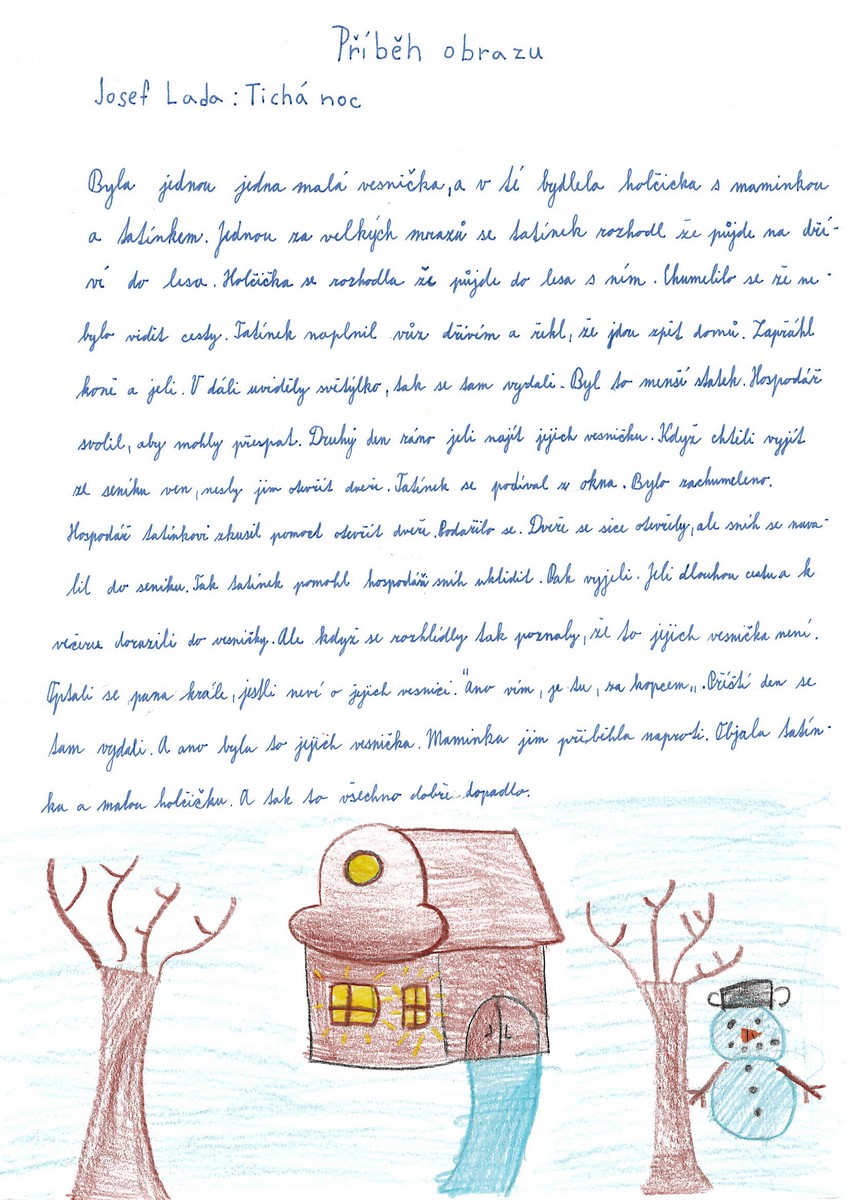 Příběh obrazu
Josef Lada: Tichá noc
Byla jednou jedna malá vesnička, a v té bydlela holčicka s maminkou
a tatínkem. Jednou za velkých mrazů se tatínek rozhodl že půjde na dří-
ví do lesa. Holčička se rozhodla že půjde do lesa s ním. Chumelilo se že ne-
bylo vidět cesty. Tatínek naplnil vůz dřívím a řekl, že jdou zpět domů. Zapřáhl
koně a jeli. V dáli uviděly světýlko, tak se tam vydali. Byl to menší statek. Hospodář
svolil, aby mohly přespat. Druhý den ráno jeli najít jejich vesničku. Když chtěli vyjít
ze seníku ven, nešly jim otevřít dveře. Tatínek se podíval z okna. Bylo zachumeleno.
Hospodář tatínkovi zkusil pomoct otevřít dveře. Podařilo se. Dveře se sice otevřely, ale sníh se nava-
lil do seníku. Tak tatínek pomohl hospodáři sníh uklidit. Pak vyjeli. Jeli dlouhou cestu a k
večeru dorazili do vesničky. Ale když se rozhlídly tak poznaly, že to jejich vesnička není.
Optali se pana krále, jestli neví o jejich vesnici. "Ano vím, je tu, za kopcem„. Příští den se
tam vydali. A ano byla to jejich vesnička. Maminka jim přiběhla naproti. Objala tatín-
ka a malou holčičku. A tak to všechno dobře dopadlo.
J L